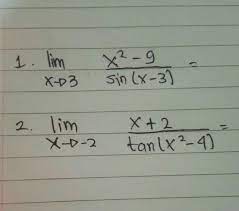 1. lim x→3 x² - 9 / sin (x-3) =
2. lim x→-2 x+2 / tan(x²-4) =